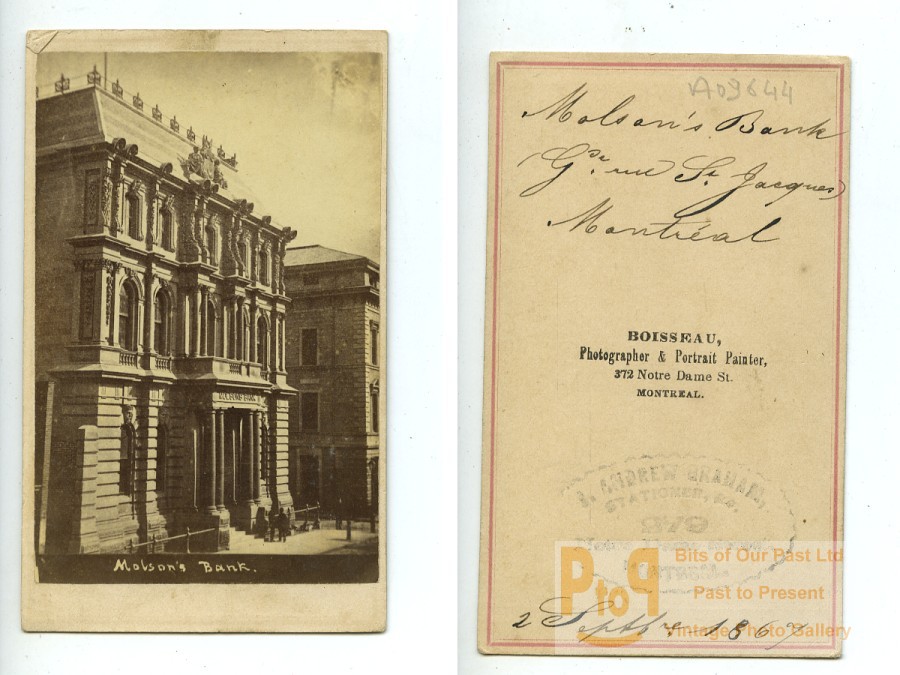 MOLSONS BANK
Molson's Bank.
A09644
Molson's Bank
(Gde. rue St. Jacques)
Montréal
BOISSEAU,
Photographer & Portrait Painter,
372 Notre Dame St.
MONTREAL.
ANDREW GRAHAM,
STATIONER, &c.
379
Notre Dame
MONTREAL
PtoP
Bits of Our Past Ltd
Past to Present
Vintage Photo Gallery
2 Septbre 1867